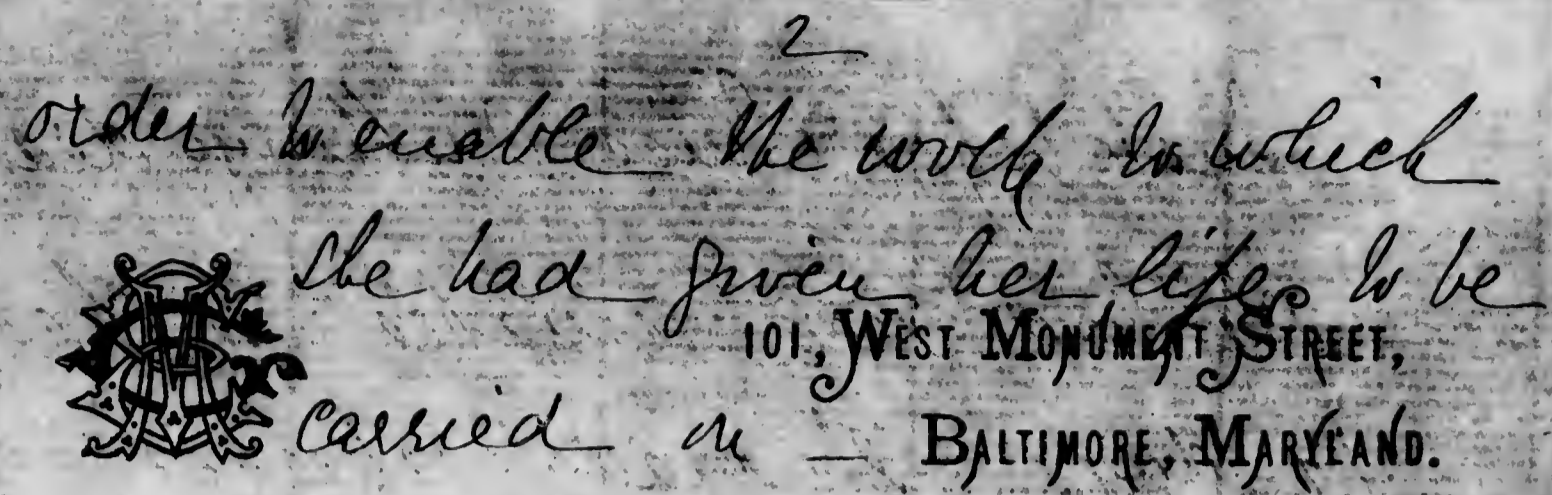 2
order to enable the work to which
she had given her life to be
101, WEST MONUMENT STREET,
carried on —
BALTIMORE, MARYLAND.